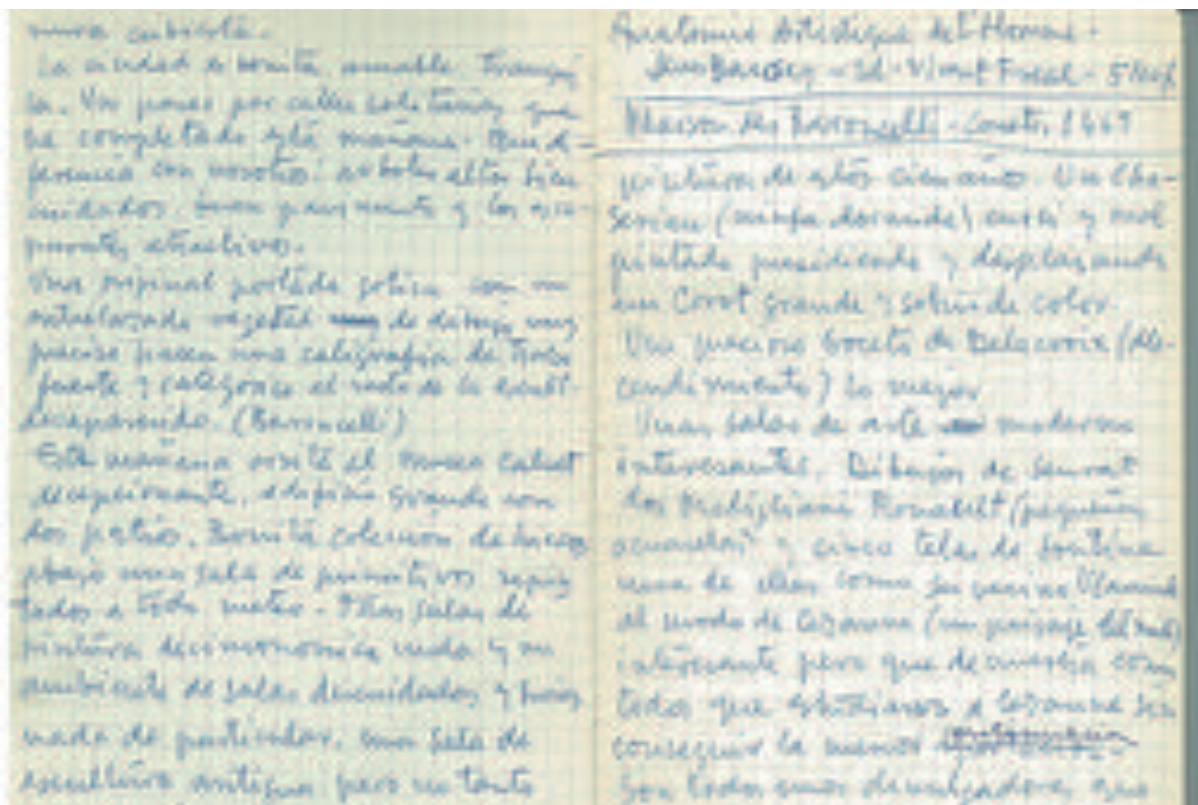 mura cubierta.
La ciudad es bonita amable tranqui
la. Un paseo por calles solitarias que
he completado esta mañana. Que di-
ferencia con nosotros. arboles altos bien
cuidados. buen pavimento y los
atractivos.
Una original portada gotica con un
entrelazado vegetal de dibujo muy
preciso parece una caligrafia de
fuente y categorica el resto de la
desaparecido. (Baroncelli)
Esta mañana visité el museo Calvet
decepcionante. edificio grande con
dos patios. Bonita coleccion de
abajo una sala de primitivos repin
tados a todo meter. Unas salas de
pintura decimononica cruda y un
ambiente de salas descuidadas y
nada de particular. una sala de
escultura antigua pero un tanto
Anatomie Artistique de l'Homme.
- Ed. Vincent Freal -
Maison des Baroncelli - Const. 1469
pintura de estos cien años. Un Cha-
seriau (ninfa dormida) cursi y mal
pintada presidiendo y desplazando
un Corot grande y sobrio de color.
Un precioso boceto de Delacroix (des-
cendimiento) lo mejor
Unas salas de arte moderno
interesantes. Dibujos de Seurat
dos Modigliani Rouault (pequeñas
acuarelas) y cinco telas de Soutine
una de ellas como
al modo de Cezanne (un paisaje
interesante pero que demuestra como
todos que estudiaron a Cezanne sin
conseguir la menor
Son todos unos divulgadores, que